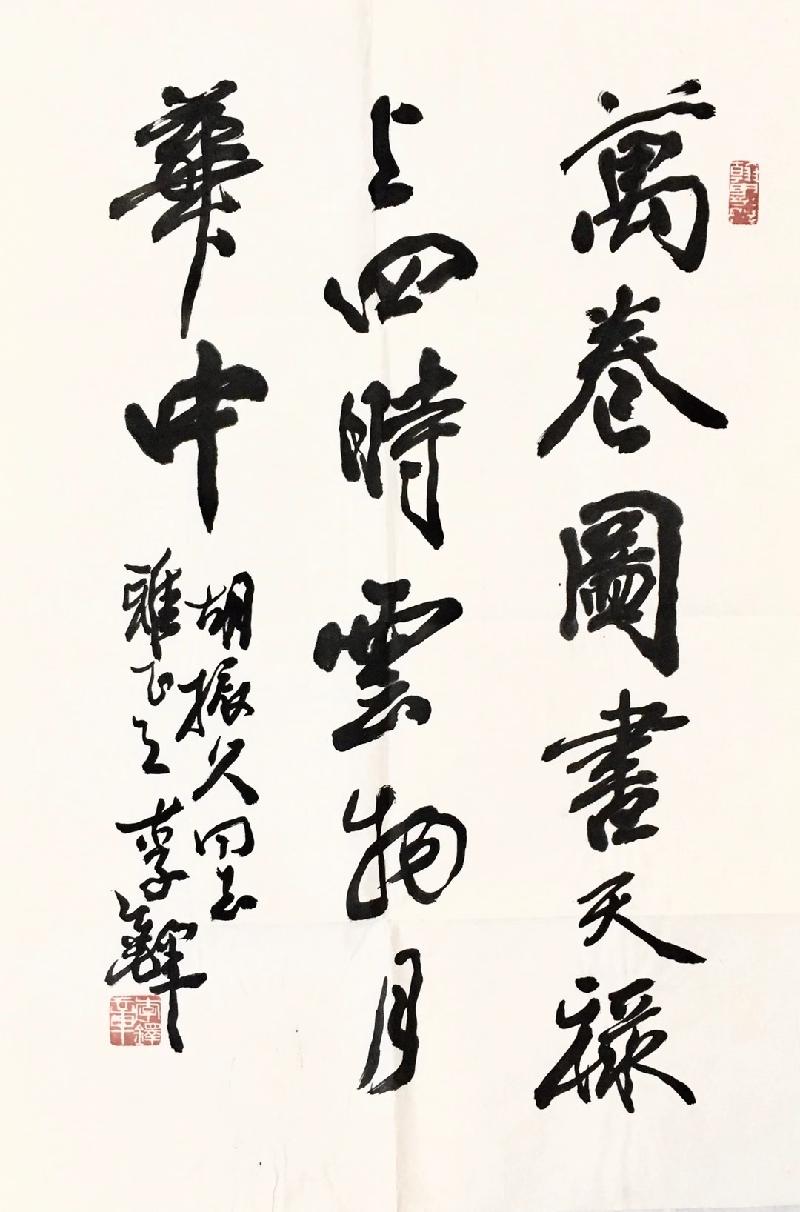 萬卷圖書天祿
上四時雲物月
華中
胡振久同志
雅正之 李鐸
李鐸